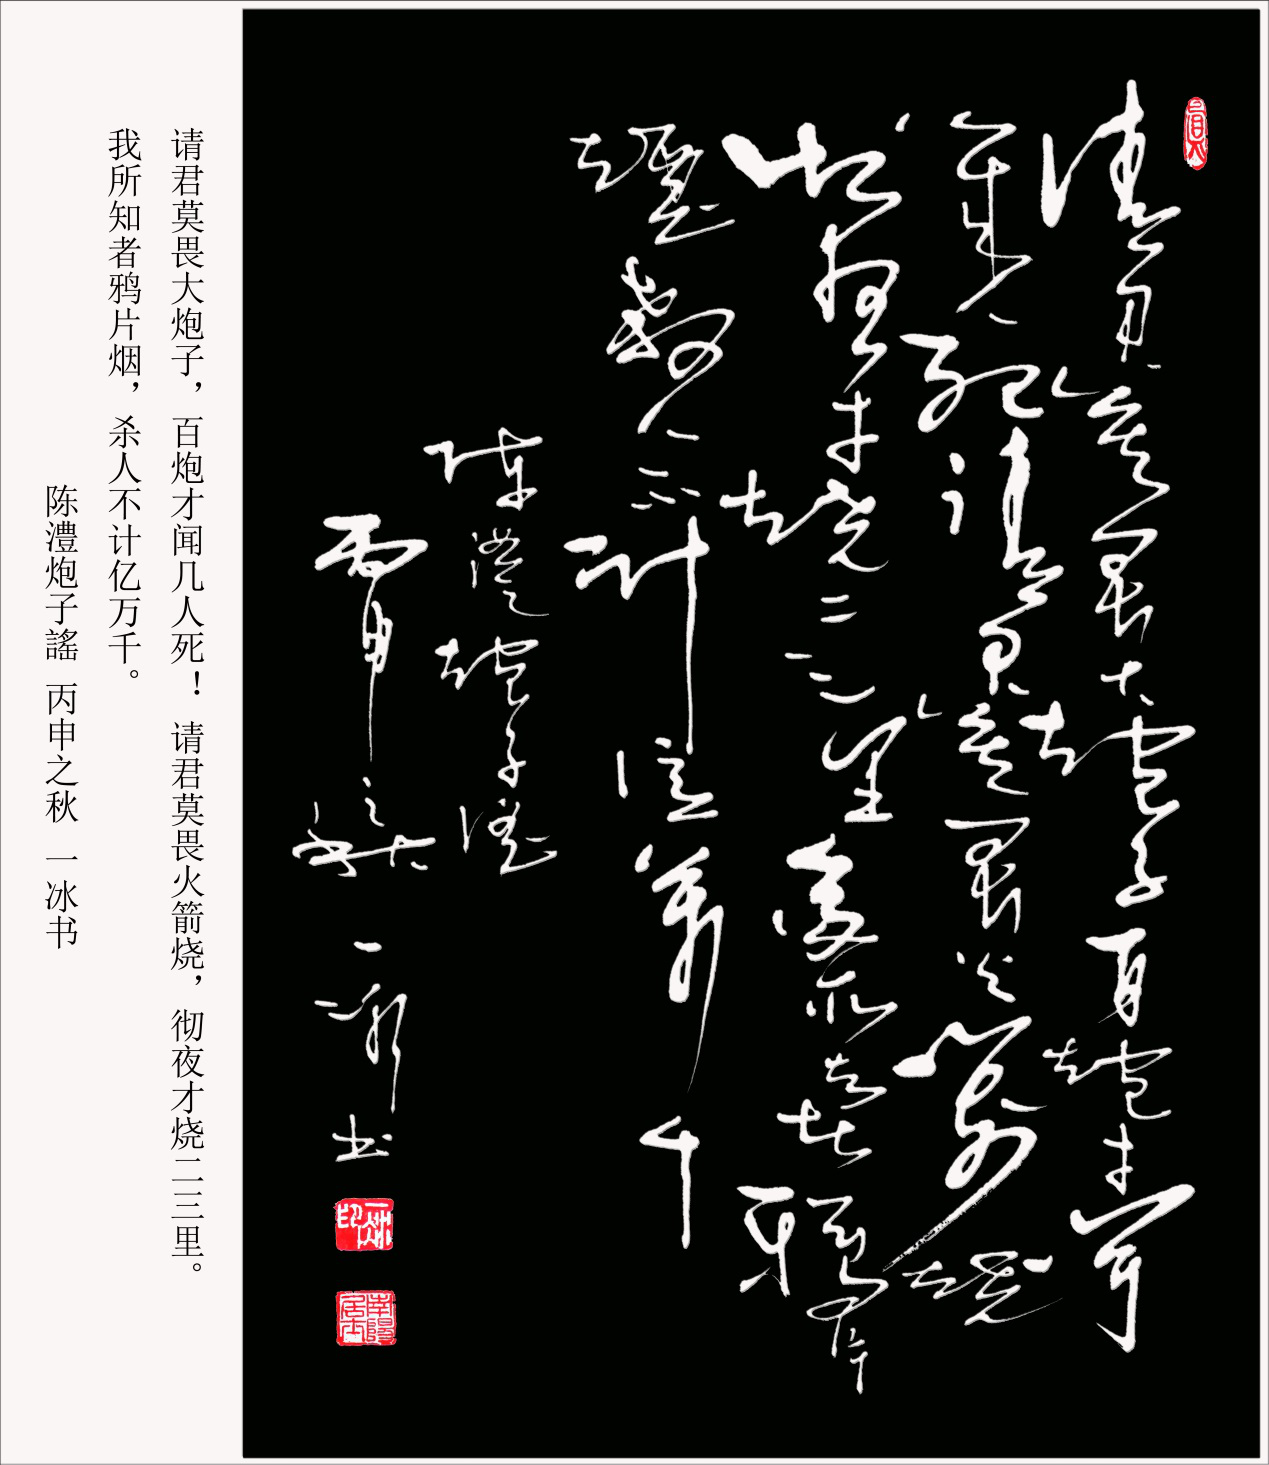 請君莫畏大炮子百炮才聞
幾人死請君莫畏火箭燒
徹夜才燒二三里我所知者鴉片
煙殺人不計億萬千
陳澧炮子謠
丙申之秋一冰书
一冰印
南陽居士
请君莫畏大炮子，百炮才闻几人死！ 请君莫畏火箭烧，彻夜才烧二三里。
我所知者鸦片烟，杀人不计亿万千。
陈澧炮子謠 丙申之秋 一冰书